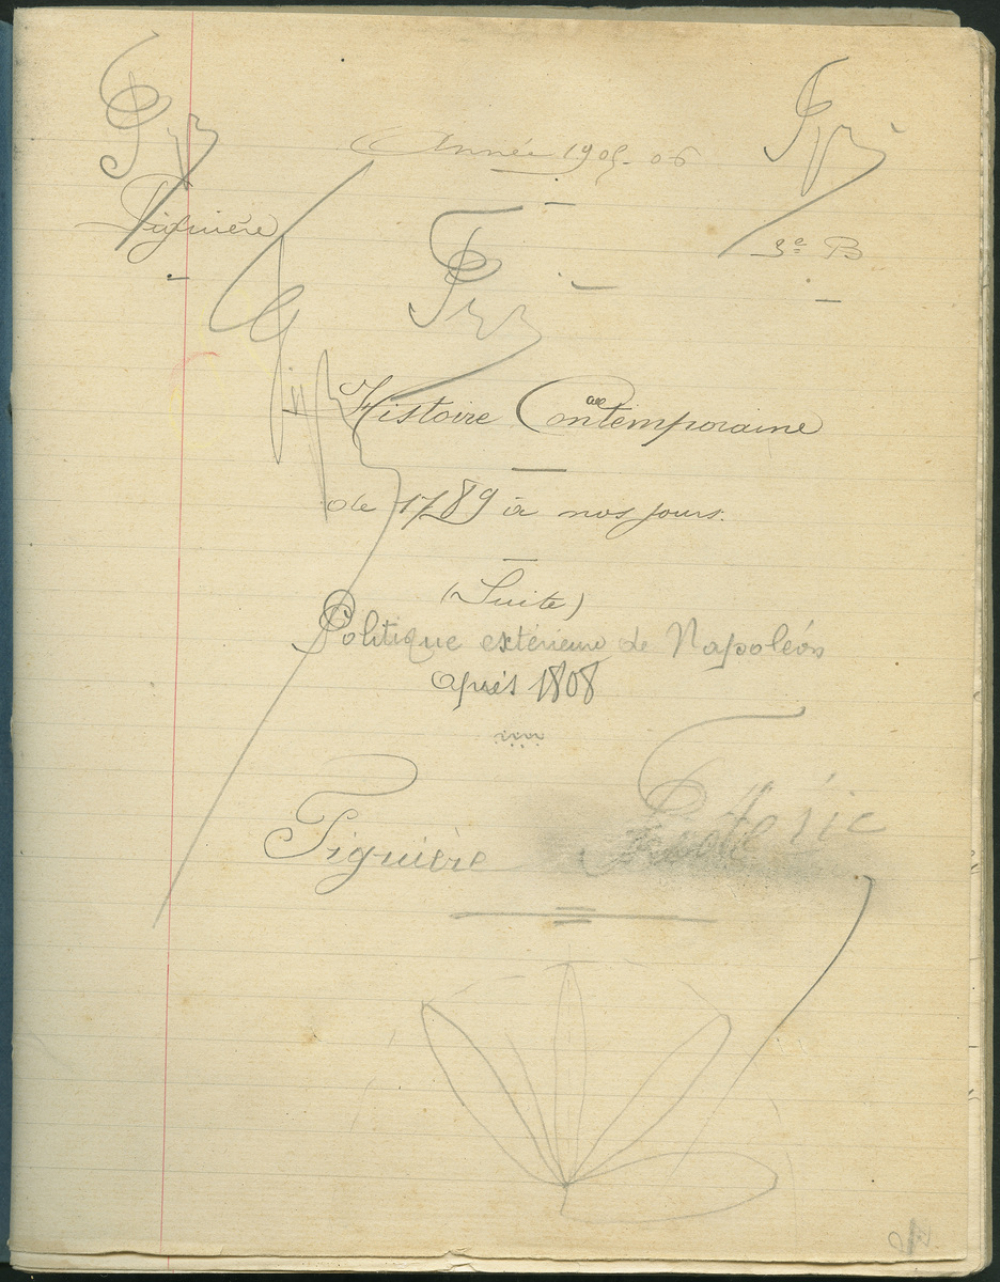 Année 1905-06
Figuière
3e B
Histoire Contemporaine
de 1789 à nos jours.
(Suite)
Politique extérieure de Napoléon
après 1808
Figuière